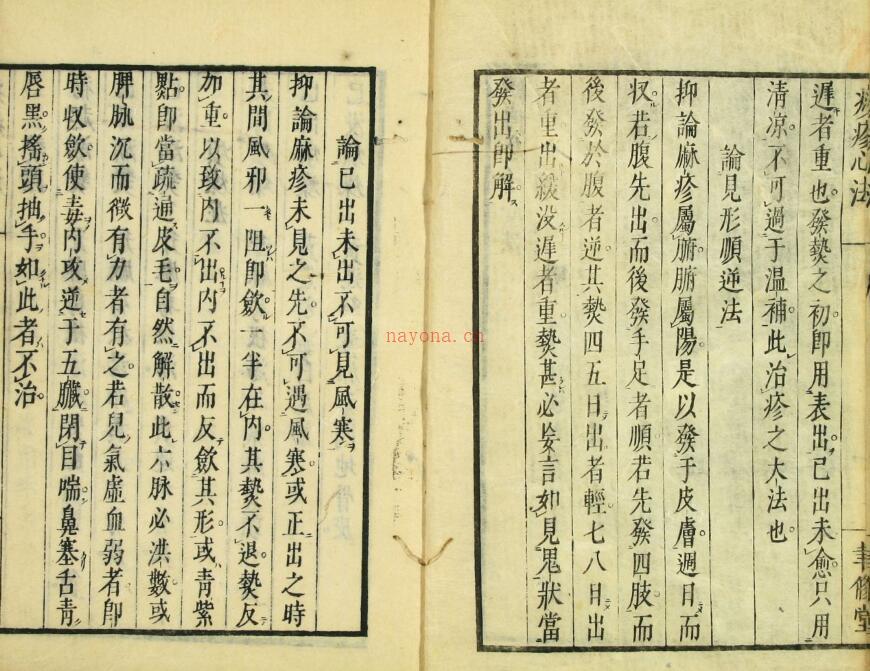 痧疹心法
聿脩堂
遲者重也發𤍠之初卽用表出已出未愈只用
清凉不可過于温補此治疹之大法也
論見形順逆法
抑論麻疹屬腑腑屬陽是以發于皮膚週日而
収若腹先出而後發手足者順若先發四肢而
後發於腹者逆其𤍠四五日出者輕七八日出
者重出緩没遲者重𤍠甚必妄言如見鬼狀當
發出卽解
論已出未出不可見風寒
抑論麻疹未見之先不可遇風寒或正出之時
其間風邪一阻卽斂一半在内其𤍠不退𤍠反
加重以致内不出内不出而反斂其形或青紫
點卽當疏通皮毛自然解散此六脉必洪數或
脾脉沉而微有力者有之若兒氣虛血弱者卽
時収斂使毒内攻逆于五臟閉目喘鼻塞舌青
唇黑搖頭抽手如此者不治
nayona.cn